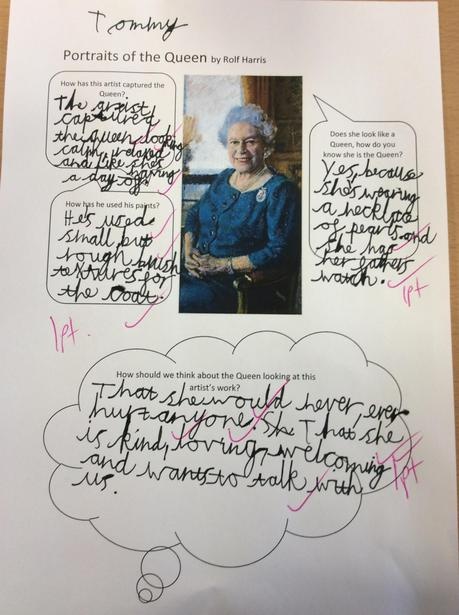 Tommy
Portraits of the Queen by Rolf Harris
How has this artist captured the
Queen?
The artist
captured
the Queen looking
calm, relaxed
and like she's
having
a day off.
How has he used his paints?
He's used
small but
rough brush
textures for
the coat.
1pt.
Does she look like a
Queen, how do you
know she is the Queen?
Yes, because
she's wearing
a necklace
of pearls and
she has
her fathers
watch.
1pt
How should we think about the Queen looking at this
artist's work?
That she would never, ever
hurt anyone. She That she
is kind, loving, welcoming
and wants to talk with
us.
1pt